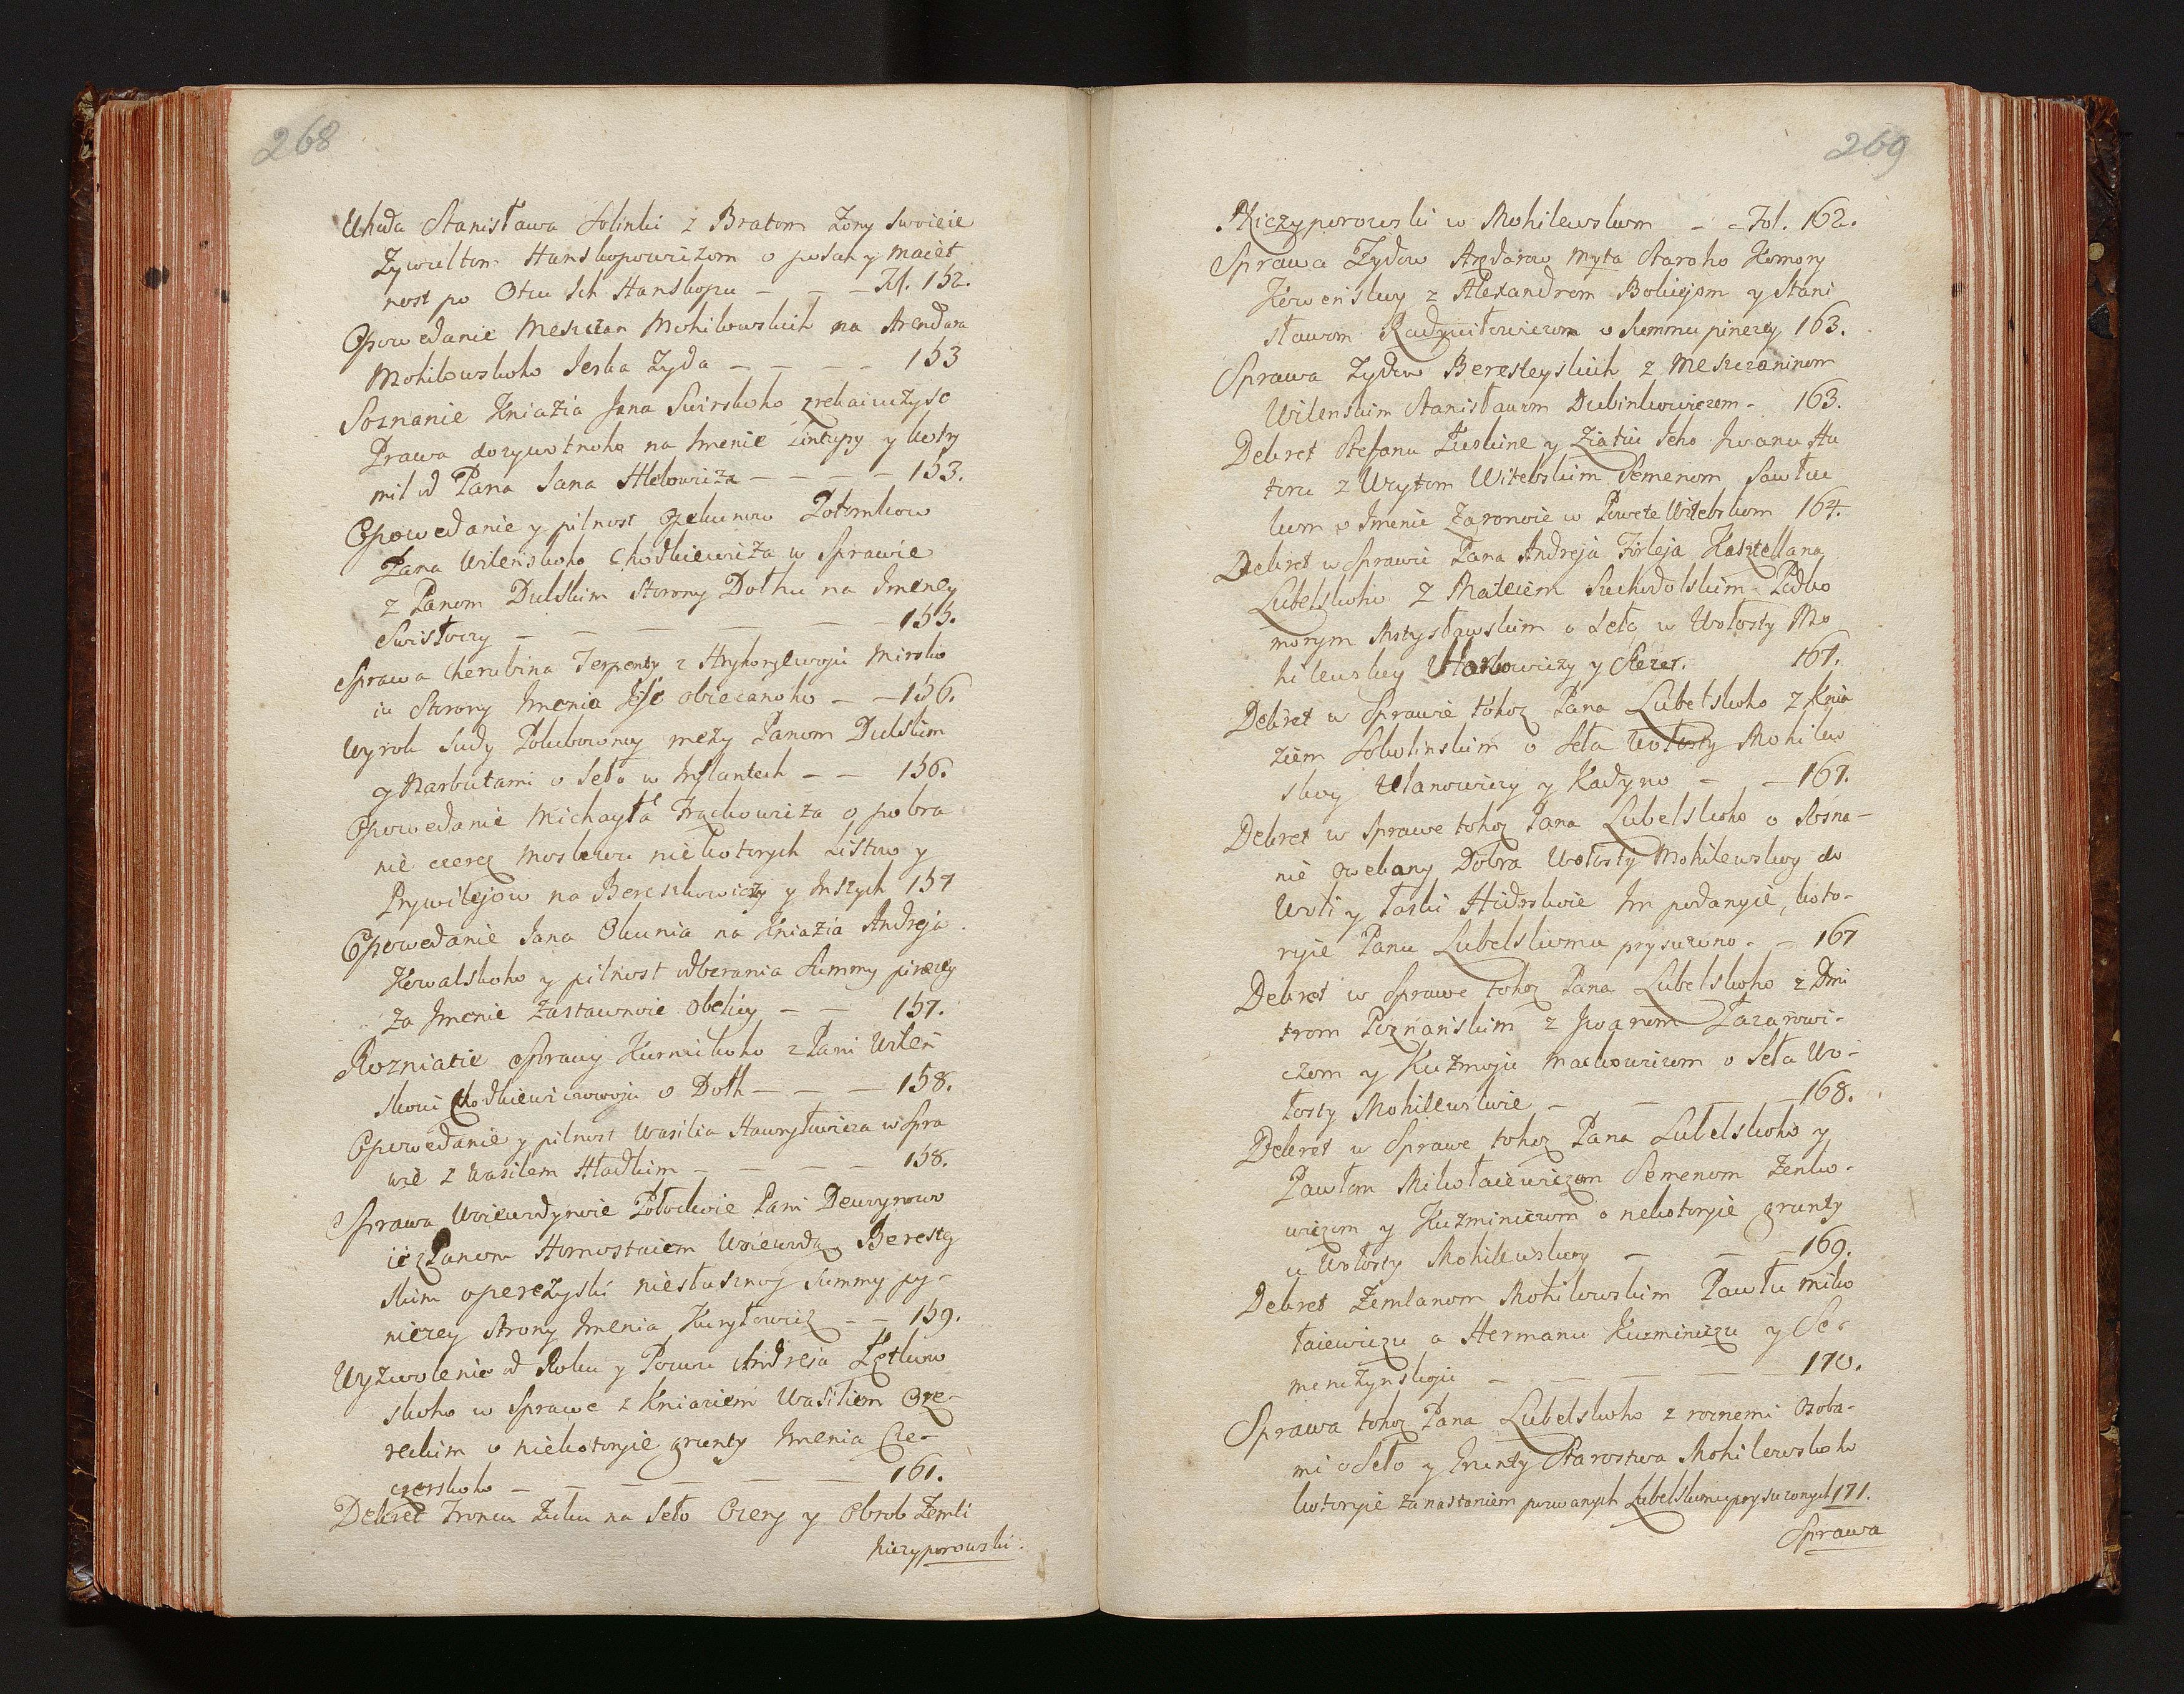 268
Uhoda Stanisława Solinki z Bratom Zony Swoieie
Zywultom Hanskopowiczom o posah y maiet
nost po Otcu Ich Hanskopu – – – Fol. 152.
Opowedanie Meszczan Mohilowskich na Arendara
Mohilowskoho Jeska Zyda – – – – 153
Soznanie Kniazia Jana Swirskoho zrekaiuczysc
Prawa dozywotnoho na Imenie Zintupy y kotry
mil od Pana Jana Hlebowicza – – – – 153.
Opowedanie y pilnost Opekunow Potomkow
Pana Wilenskoho Chodkiewicza w Sprawie
z Panom Dulskim Storony Dołhu na Imeney
Swisłoczy – – – – – 155.
Sprawa Cherubina Terpenty z Hryhoryewoju Mirsko
iu Storony Imenia Jeje obiecanoho – – 156.
Wyrok Sudu Polubownoy mezy Panom Dulskim
y Narbutami o Seło w Inflantech – – 156.
Opowedanie Michayła Frąckowicza o pobra
nie czerez Moskwu niekotorych Listow y
Prywilejow na Bereszkowiczy y Inszych 157
Opowedanie Jana Okunia na Kniazia Andreja
Kowalskoho y pilnost odberania Summy pinezey
za Imenie Zastawnoie Obelicy – – 157.
Rozniatie Sprawy Kurnickoho z Pani Wilen
skoiu Chodkiewiczowoju o Dołh – – – 158.
Opowedanie y pilnost Wasilia Hawryłowicza w Spra
wie z Wasilem Hładkim – – – – 158.
Sprawa Woiewodynoie Połockoie Pani Dowoynowo
ie z Panom Hornostaiem Woiewodą Beresty
skim o perezyski niesłusznoy Summy py-
niezey Strony Imenia Kuryłowicz – – 159.
Wyzwolenie od Roku y Pozwu Andreia Łętkow
skoho w Sprawe z Kniaziem Wasiliem Oze-
reckim o niekotoryie grunty Imenia Cze-
czerskoho – – – – – 161.
Dekret Ironcu Zuku na Seło Ozery y Obrob Zemli
Niczyporowski.

269
Niczyporowski w Mohilewskom – – Fol. 162.
Sprawa Zydow Arędarow Myta Staroho Komory
Kowenskoy z Alexandrom Bokiejom y Stani
sławom Radziwiłowiczom o Summu pinezey 163.
Sprawa Zydow Beresteyskich z Meszczaninom
Wilenskim Stanisławom Dubinkowiczem – 163.
Dekret Stefanu Łuskine y Ziatiu Jeho Iwanu Hu
toru z Woytom Witebskim Semenom Sawłu
kom o Imenie Zaronoie w Powete Witebskom 164.
Dekret w Sprawie Pana Andreja Firleja Kasztellana
Lubelskoho z Mateiem Suchodolskim Podko
morym Mstysławskim o Seło w Wołosty Mo
hilewskey Horbowiczy y Slezer. 167.
Dekret w Sprawie tohoz Pana Lubelskoho z Knia
ziem Sokolinskim o Seła Wołosty Mohilew
skoy Ulanowiczy y Kadyno – – 167.
Dekret w Sprawe tohoz Pana Lubelskoho o Sozna-
nie Dobra Wołosty Mohilewskoy do
Woli y Łaski Hidrskoie Im podanyie, koto-
ryie Panu Lubelskomu prysuzono – – 167
Dekret w Sprawe tohoz Pana Lubelskoho z Dmi
trom Poznanskim z Iwanom Łazarowi-
czom y Kuzmoju Mackowiczom o Seła Wo-
łosty Mohilewskoie – – – 168.
Dekret w Sprawe tohoz Pana Lubelskoho y
Pawłom Mikołaiewiczom Semenom Zenko-
wiczom y Kuzminiczom o nekotoryie grunty
u Wołosty Mohilewskoy – – – 169.
Dekret Zemlanom Mohilowskim Pawłu Miko
łaiewiczu a Hermanu Kuzminiczu y Se-
menczynskoju – – – – 170.
Sprawa tohoz Pana Lubelskoho z roznemi Osoba-
mi o Seło y Grunty Starostwa Mohilewskoho
kotoryie za nastaniem pozwanych Lubelskomu prysuzonych 171.
Sprawa